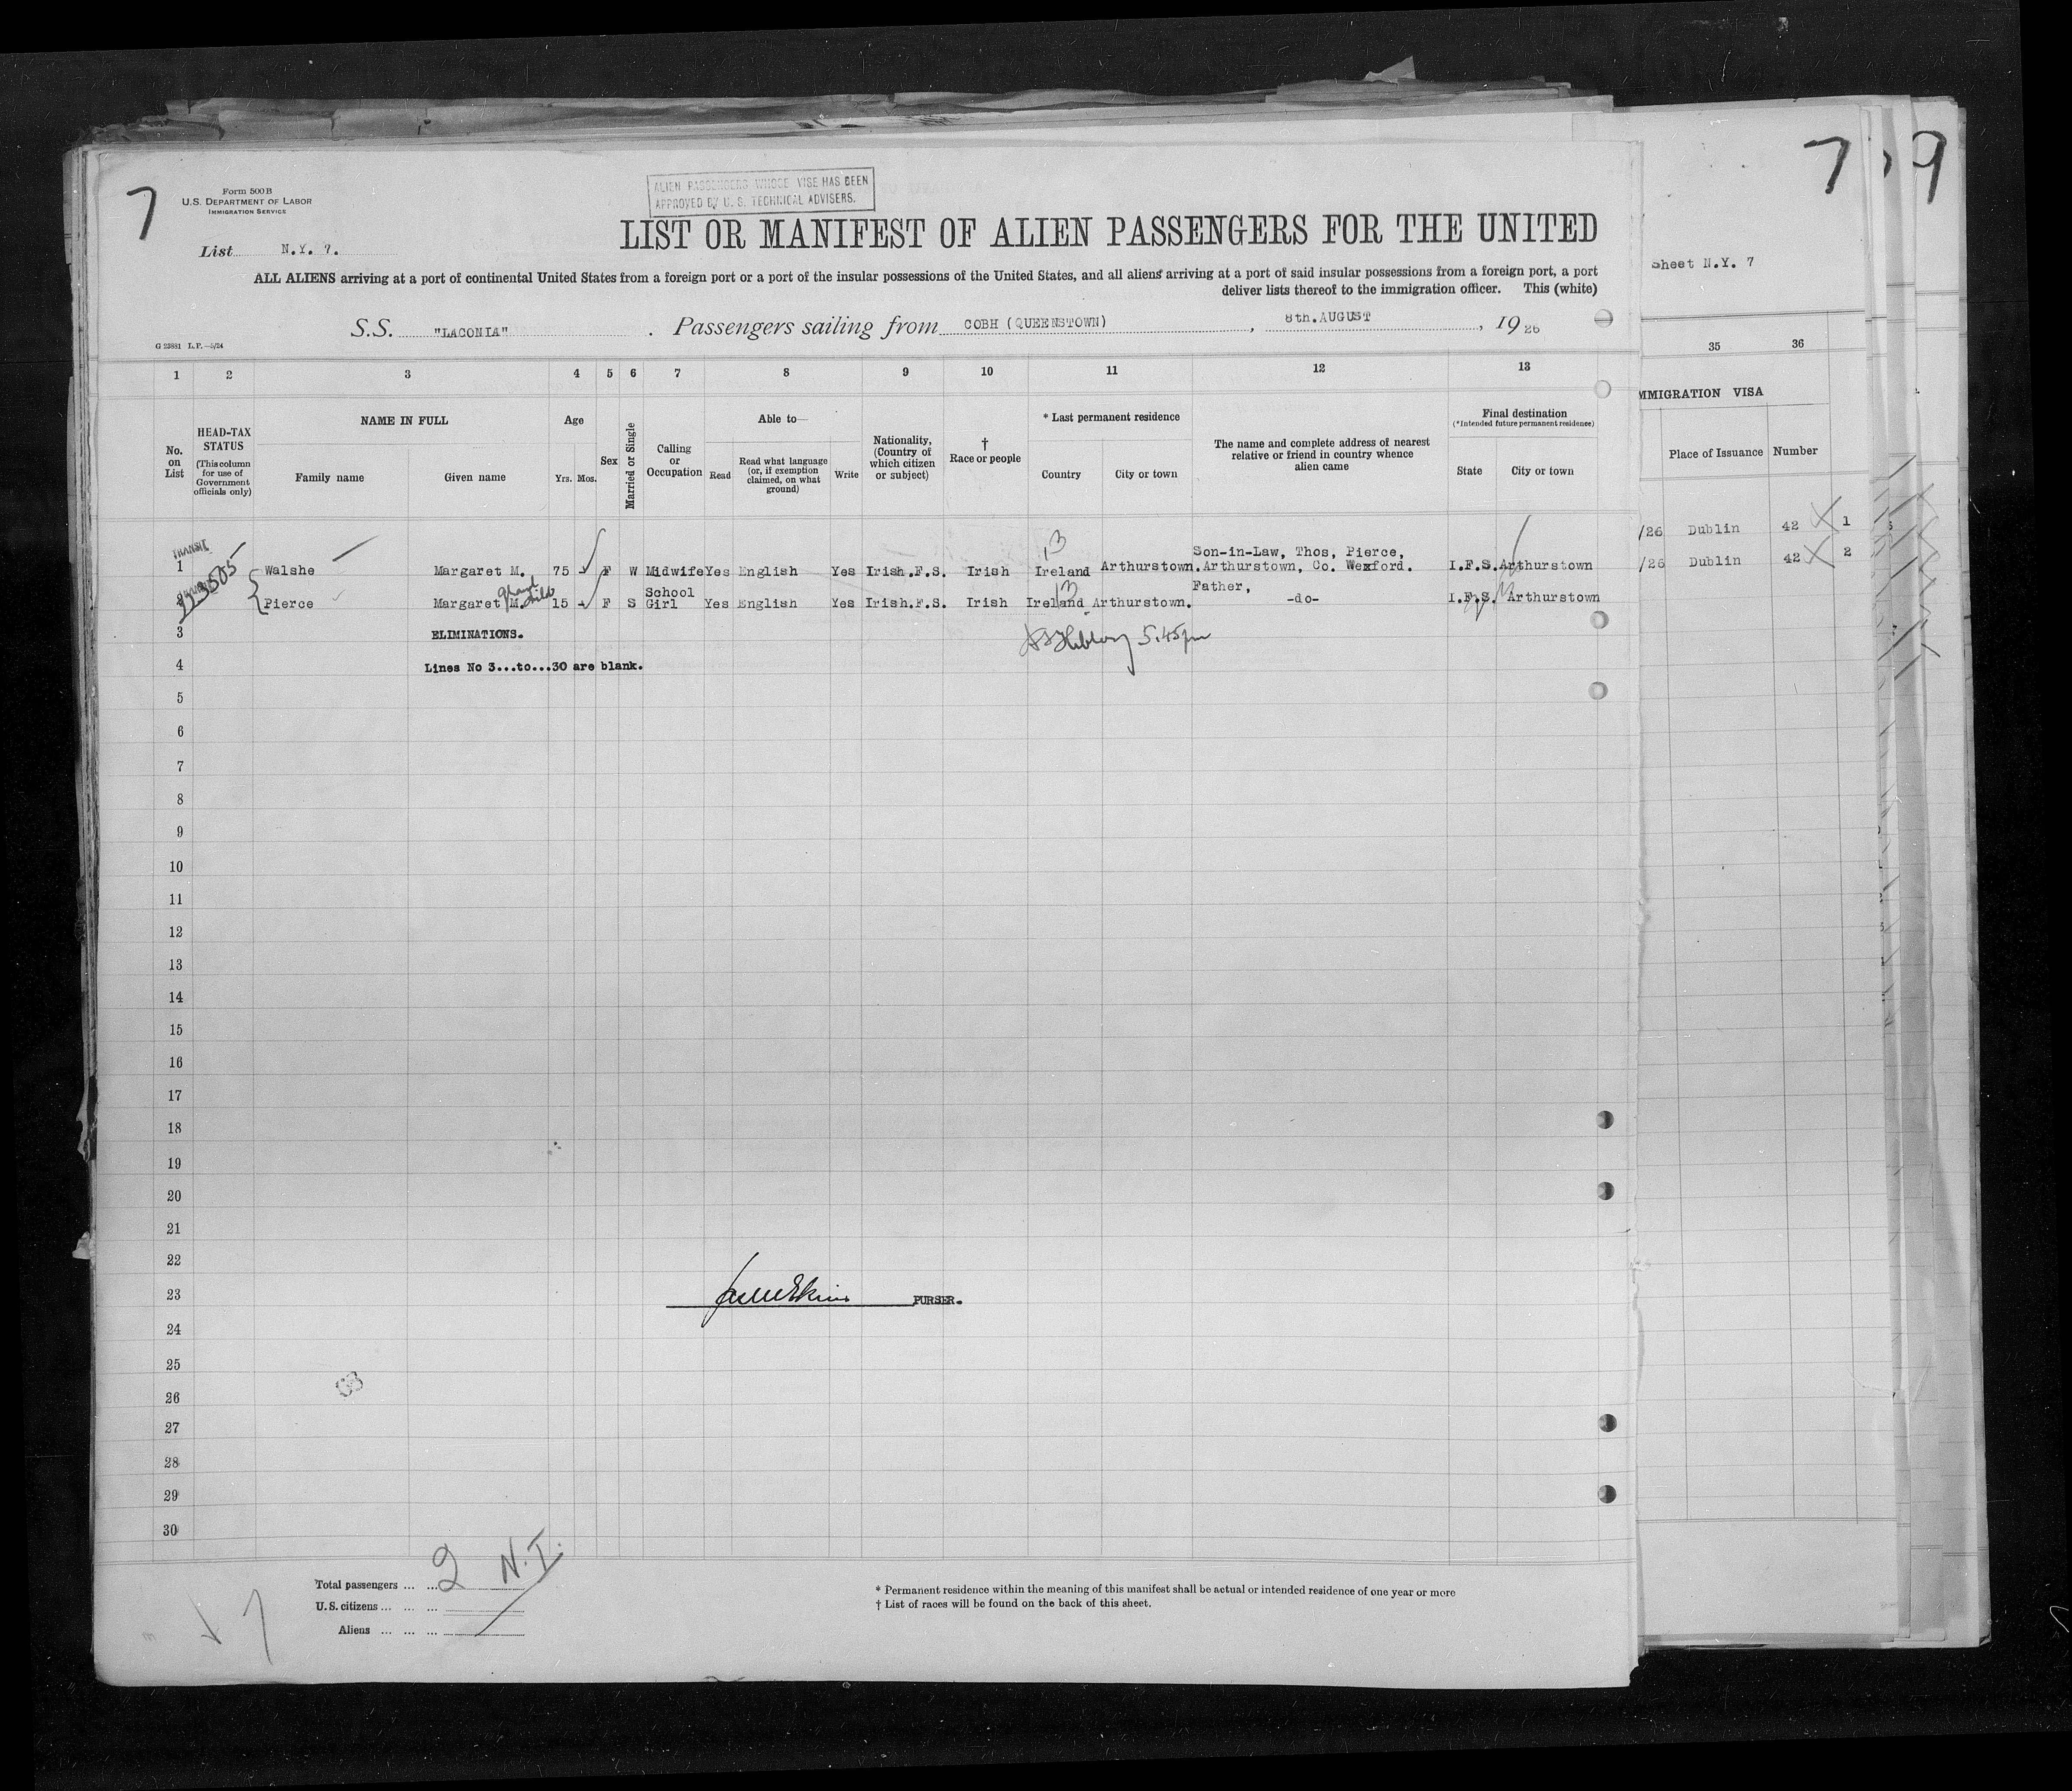 7
7
9
Form 500 B
U.S. DEPARTMENT OF LABOR
IMMIGRATION SERVICE
ALIEN PASSENGERS WHOSE VISE HAS BEEN
APPROVED BY U. S. TECHNICAL ADVISERS.
LIST OR MANIFEST OF ALIEN PASSENGERS FOR THE UNITED
List N.Y. 7.
Sheet N.Y. 7
ALL ALIENS arriving at a port of continental United States from a foreign port or a port of the insular possessions of the United States, and all aliens arriving at a port of said insular possessions from a foreign port, a port
deliver lists thereof to the immigration officer. This (white)
S.S. "LACONIA". Passengers sailing from COBH (QUEENSTOWN), 8th.AUGUST, 1926
G 23881 L.P.—5/24
1 2 3 4 5 6 7 8 9 10 11 12 13
35 36
No. on List
HEAD-TAX STATUS
(This column for use of Government officials only)
NAME IN FULL
Family name
Given name
Age
Yrs. Mos.
Sex
Married or Single
Calling or Occupation
Able to—
Read
Read what language (or, if exemption claimed, on what ground)
Write
Nationality, (Country of which citizen or subject)
† Race or people
* Last permanent residence
Country
City or town
The name and complete address of nearest relative or friend in country whence alien came
Final destination
(*Intended future permanent residence)
State
City or town
IMMIGRATION VISA
Place of Issuance
Number
/26 Dublin 42 1
/26 Dublin 42 2
TRANSIT
Son-in-Law, Thos, Pierce,
1 Walshe Margaret M. 75 F W Midwife Yes English Yes Irish.F.S. Irish Ireland Arthurstown. Arthurstown, Co. Wexford. I.F.S. Arthurstown
grand child
School Father,
Pierce Margaret M. 15 F S Girl Yes English Yes Irish.F.S. Irish Ireland Arthurstown. -do- I.F.S. Arthurstown
3 ELIMINATIONS.
5.45pm
4 Lines No 3...to...30 are blank.
5
6
7
8
9
10
11
12
13
14
15
16
17
18
19
20
21
22
23 PURSER.
24
25
26
27
28
29
30
Total passengers ... ... 2 N.I.
U.S. citizens ... ... ...
Aliens ... ... ...
* Permanent residence within the meaning of this manifest shall be actual or intended residence of one year or more
† List of races will be found on the back of this sheet.